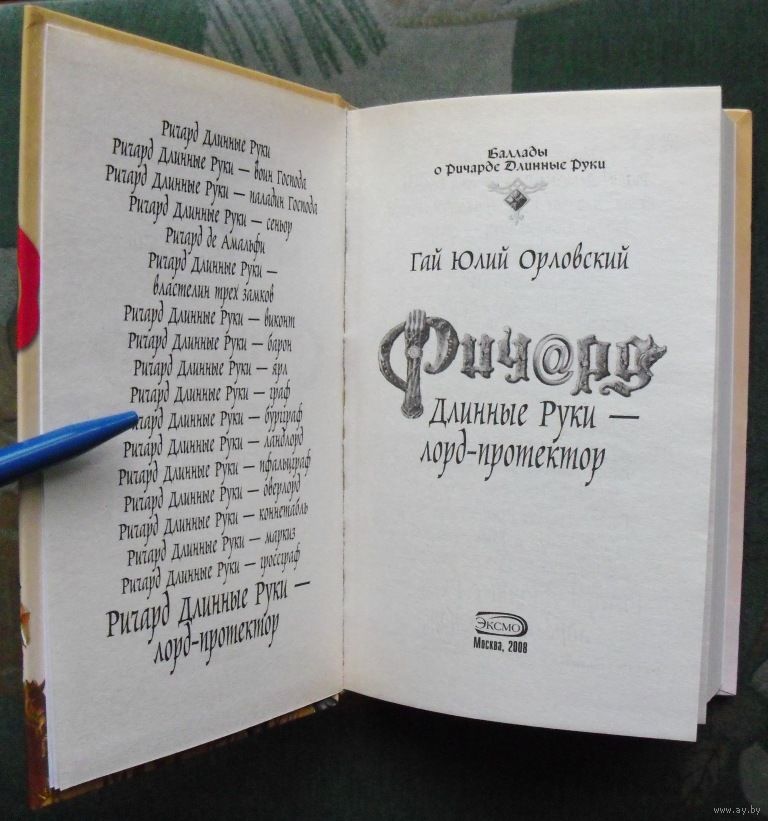 Ричард Длинные Руки
Ричард Длинные Руки — воин Господа
Ричард Длинные Руки — паладин Господа
Ричард Длинные Руки — сеньор
Ричард де Амальфи
Ричард Длинные Руки —
властелин трех замков
Ричард Длинные Руки — виконт
Ричард Длинные Руки — барон
Ричард Длинные Руки — ярл
Ричард Длинные Руки — граф
Ричард Длинные Руки — бургграф
Ричард Длинные Руки — ландлорд
Ричард Длинные Руки — пфальцграф
Ричард Длинные Руки — оверлорд
Ричард Длинные Руки — коннетабль
Ричард Длинные Руки — маркиз
Ричард Длинные Руки — гроссграф
Ричард Длинные Руки —
лорд-протектор
Баллады
о Ричарде Длинные Руки
Гай Юлий Орловский
Рич@рд
Длинные Руки —
лорд-протектор
ЭКСМО
Москва, 2008
www.ay.by